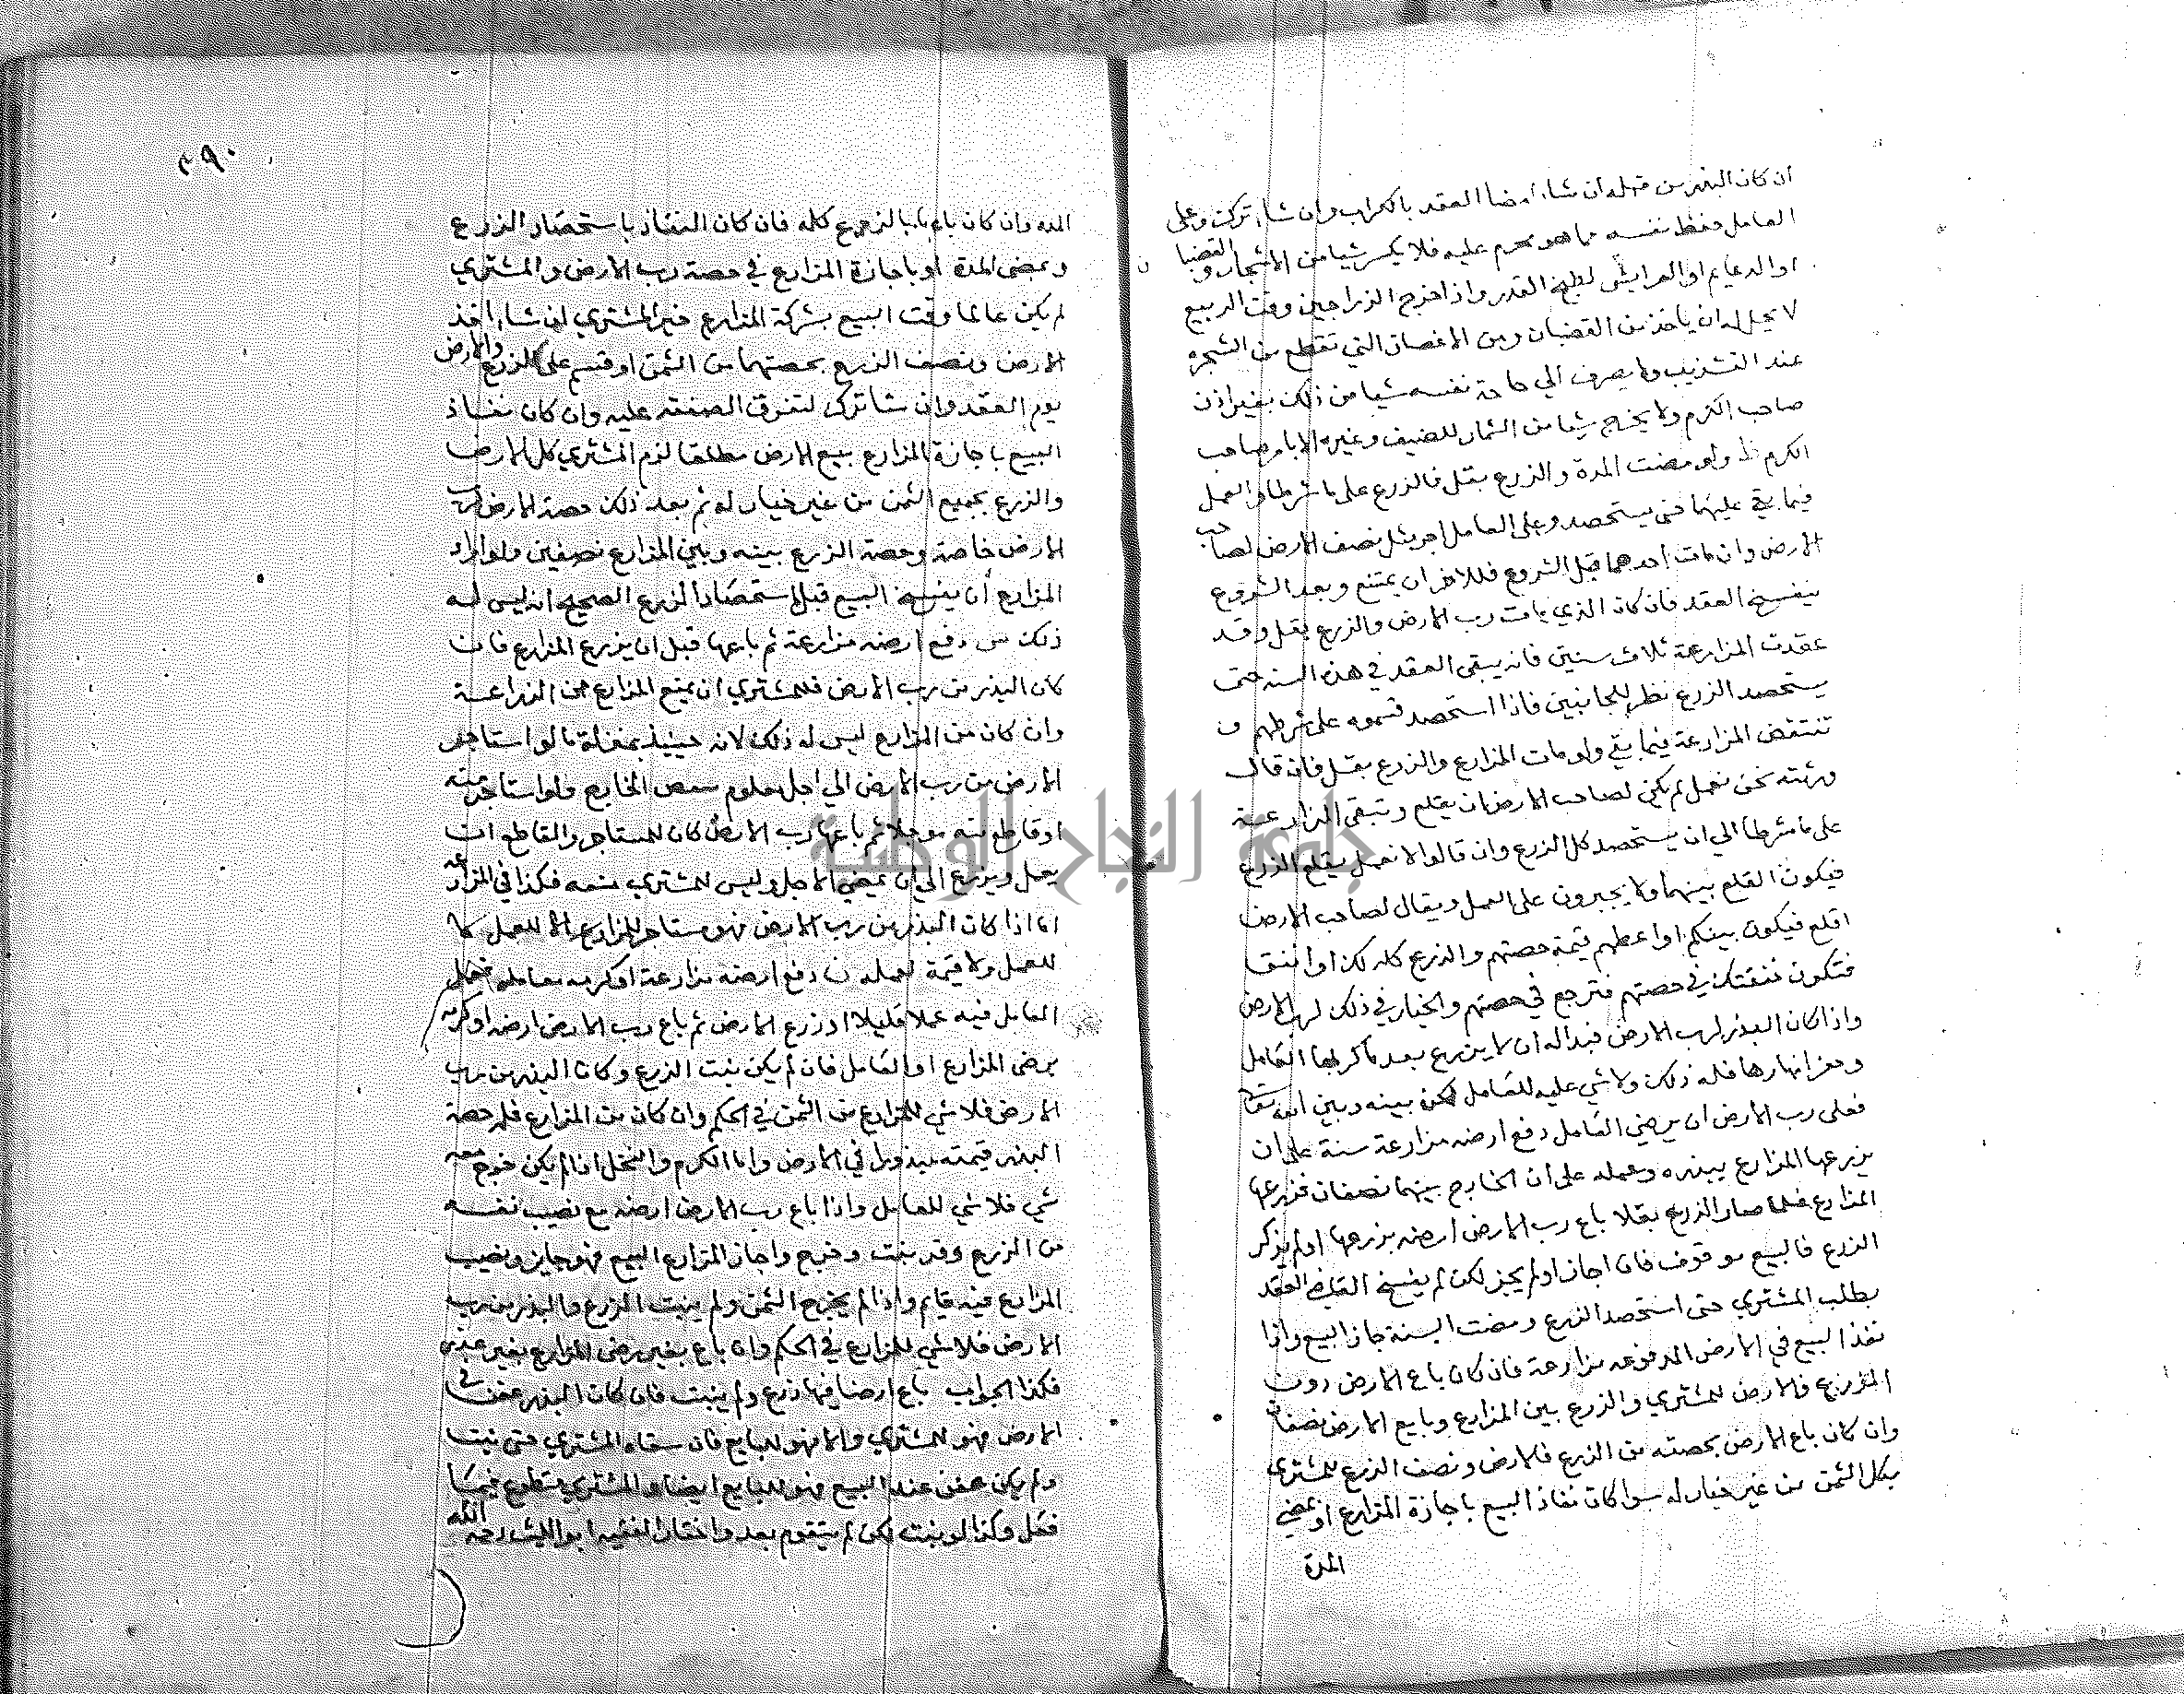 ان كان البذر من قبله ان شاء امضا العقد بالكراب وان شاء ترك وعلى
العامل حفظ نفسه مما هو محرم عليه فلا يكسر شيا من الاشجار والقضبا
ن
او الدعايم او العرايش لطبخ القدر واذا اخرج الزراجين وقت الربيع
لا يحل له ان ياخذ من القضبان ومن الاغصان التي تقطع من الشجرة
عند التشذيب ولا يصرف الي حاجة نفسه شيا من ذلك بغير اذن
صاحب الكرم ولا يخرج شيا من الثمار للضيف وغيره الا بامر صاحب
الكرم ولو مضت المدة والزرع بقل فالزرع على ما شرطا والعمل
فيما بقي عليهما حتى يستحصد وعلى العامل اجر مثل نصف الارض لصاحب
الارض وان مات احدهما قبل الشروع فللاخر ان يمتنع وبعد الشروع
ينفسخ العقد فان كان الذي مات رب الارض والزرع بقل وقد
عقدت المزارعة ثلاث سنين فانه يبقى العقد في هذه السنه حتى
يستحصد الزرع نظر للجانبين فاذا استحصد قسموه على شرطهم و
تنتقض المزارعة فيما بقي ولو مات المزارع والزرع بقل فان قال
ورثته نحن نعمل لم يكن لصاحب الارض ان يقلع وتبقى المزارعة
على ما شرطا الي ان يستحصد كل الزرع وان قالوا لا نعمل يقلع الزرع
فيكون القلع بينهما ولا يجبرون على العمل ويقال لصاحب الارض
اقلع فيكون بينكم او اعطهم قيمة حصتهم والزرع كله لك او انفق
فتكون نفقتك في حصتهم فترجع في حصتهم والخيار في ذلك لرب الارض
واذا كان البذر لرب الارض فبدا له ان لا يزرع بعد ما كربها العامل
وحفر انهارها فله ذلك ولا شي عليه للعامل لكن بينه وبين الله تعا
فعلى رب الارض ان يرضي العامل دفع ارضه مزارعة سنة على ان
يزرعها المزارع ببذره وعمله على ان الخارج بينهما نصفان فزرعها
المزارع فلما صار الزرع بقلا باع رب الارض ارضه بزرعها او لم يذكر
الزرع فالبيع موقوف فان اجاز او لم يجز لكن لم يفسخ القاضي العقد
بطلب المشتري حتى استحصد الزرع ومضت السنة جاز البيع واذا
نفذ البيع في الارض المدفوعه مزارعة فان كان باع الارض دون
الزرع فالارض للمشتري والزرع بين المزارع وبايع الارض نصفان
وان كان باع الارض بحصته من الزرع فالارض ونصف الزرع للمشتري
بكل الثمن من غير خيار له سوا كان نفاذ البيع باجازة المزارع او بمضي
المدة
٣٩٠
المده وان كان باعها بالزرع كله فان كان النفاذ باستحصاد الزرع
وبمضى المدة او باجازة المزارع في حصة رب الارض والمشتري
لم يكن عالما وقت البيع بشركة المزارع خير المشتري ان شاء اخذ
الارض ونصف الزرع بحصتهما من الثمن او قسم على الزرع والارض
يوم العقد وان شا ترك لتفرق الصفقه عليه وان كان نفاذ
البيع باجازة المزارع بيع الارض مطلقا لزم المشتري كل الارض
والزرع بجميع الثمن من غير خيار له ثم بعد ذلك حصة الارض لرب
الارض خاصة وحصة الزرع بينه وبين المزارع نصفين ولو اراد
المزارع ان يفسخ البيع قبل استحصاد الزرع الصحيح انه ليس له
ذلك س دفع ارضه مزارعة ثم باعها قبل ان يزرع المزارع فان
كان البذر من رب الارض فللمشتري ان يمنع المزارع من الزراعة
وان كان من المزارع ليس له ذلك لانه حينيذ بمنزلة ما لو استاجر
الارض من رب الارض الي اجل معلوم ببعض الخارج ولو استاجر منه
او قاطع سنه ثم باعها رب الارض كان للمستاجر والقاطع ان
يعمل ويزرع الي ان يمضي الاجل وليس للمشتري منعه فكذا في المزارعه
اما اذا كان البذر من رب الارض فهو مستاجر للمزارع للعمل
للعمل ولا قيمة لعمله ن دفع ارضه مزارعة او كرمه معاملة فعمل
العامل فيه عملا قليلا او زرع الارض ثم باع رب الارض ارضه او كرمه
برضى المزارع او العامل فان لم يكن نبت الزرع وكان البذر من رب
الارض فلا شي للمزارع من الثمن في الحكم وان كان من المزارع فله حصة
البذر قيمته مبدورا في الارض واما الكرم والنخل ان لم يكن خرج معه
شي فلا شي للعامل واذا باع رب الارض ارضه مع نصيب نفسه
من الزرع وقد نبت وخرج واجاز المزارع البيع فهو جايز ونصيب
المزارع فيه قايم واذا لم يخرج الثمن ولم ينبت الزرع والبذر من رب
الارض فلا شي للمزارع في الحكم وان باع بغير رضى المزارع بغير عذر
فكذا الجواب باع ارضا فيها زرع ولم ينبت فان كان البذر عفن في
الارض فهو للمشتري والا فهو للبايع فان سقاه المشتري حتى نبت
ولم يكن عفن عند البيع فهو للبايع ايضا والمشتري متطوع فيما
فعل وكذا لو نبت لكن لم يتقوم بعد واختار الفقيه ابو الليث رحمه الله
جامعة النجاح الوطنية